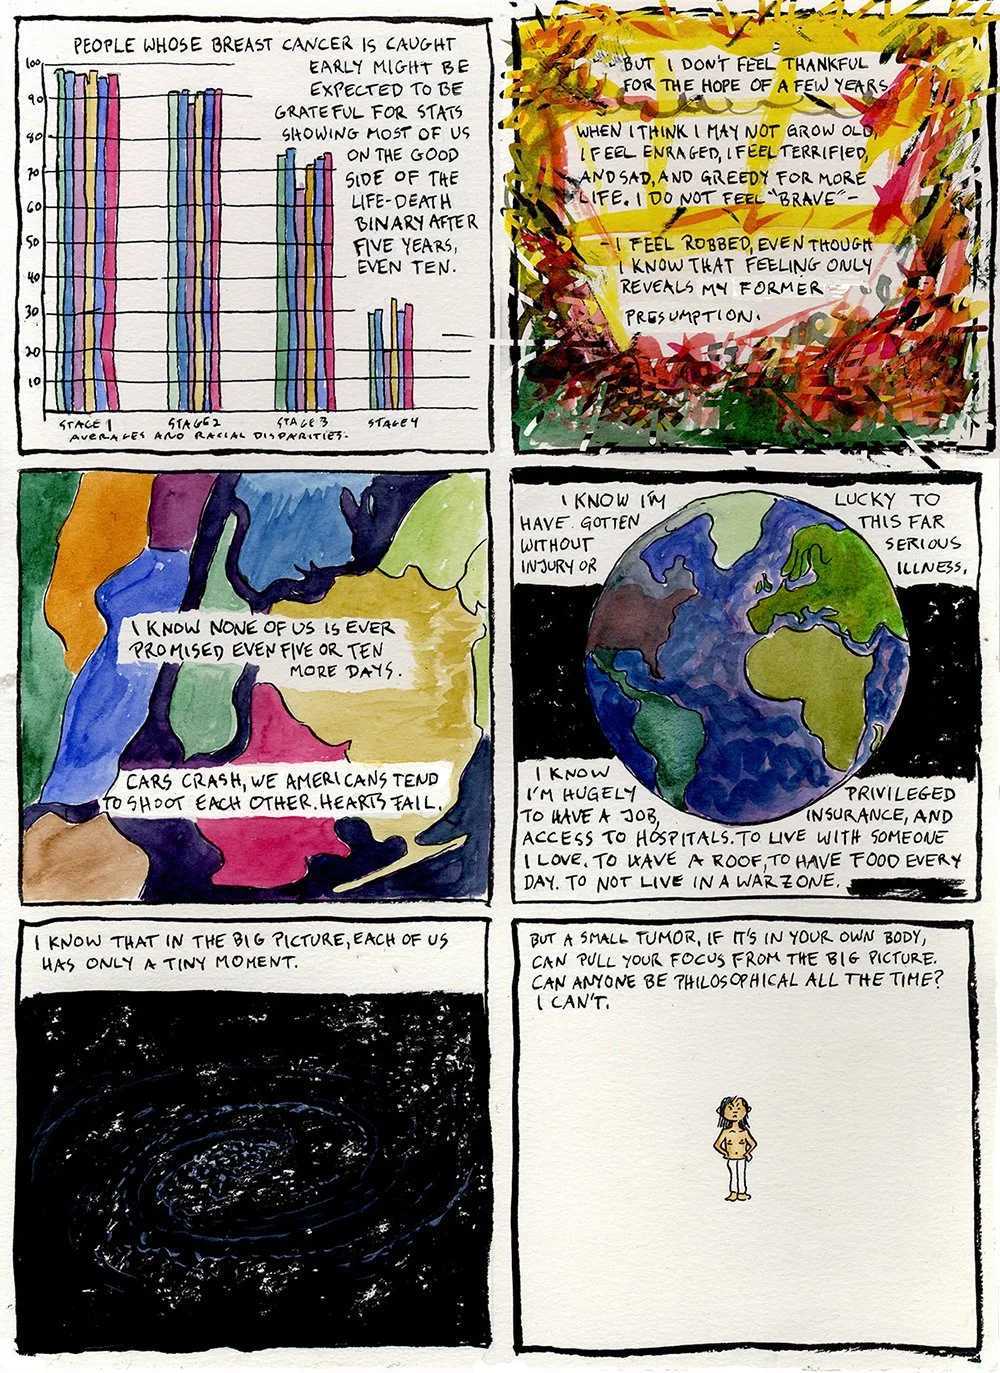 PEOPLE WHOSE BREAST CANCER IS CAUGHT
EARLY MIGHT BE
EXPECTED TO BE
GRATEFUL FOR STATS
SHOWING MOST OF US
ON THE GOOD
SIDE OF THE
LIFE-DEATH
BINARY AFTER
FIVE YEARS,
EVEN TEN.
100
90
80
70
60
50
40
30
20
10
STAGE 1 STAGE 2 STAGE 3 STAGE 4
AVERAGES AND RACIAL DISPARITIES.
BUT I DON'T FEEL THANKFUL
FOR THE HOPE OF A FEW YEARS.
WHEN I THINK I MAY NOT GROW OLD,
I FEEL ENRAGED, I FEEL TERRIFIED,
AND SAD, AND GREEDY FOR MORE
LIFE. I DO NOT FEEL "BRAVE" -
- I FEEL ROBBED, EVEN THOUGH
I KNOW THAT FEELING ONLY
REVEALS MY FORMER
PRESUMPTION.
I KNOW NONE OF US IS EVER
PROMISED EVEN FIVE OR TEN
MORE DAYS.
CARS CRASH, WE AMERICANS TEND
TO SHOOT EACH OTHER. HEARTS FAIL.
I KNOW I'M LUCKY TO
HAVE GOTTEN THIS FAR
WITHOUT SERIOUS
INJURY OR ILLNESS.
I KNOW
I'M HUGELY PRIVILEGED
TO HAVE A JOB, INSURANCE, AND
ACCESS TO HOSPITALS. TO LIVE WITH SOMEONE
I LOVE. TO HAVE A ROOF, TO HAVE FOOD EVERY
DAY. TO NOT LIVE IN A WARZONE.
I KNOW THAT IN THE BIG PICTURE, EACH OF US
HAS ONLY A TINY MOMENT.
BUT A SMALL TUMOR, IF IT'S IN YOUR OWN BODY,
CAN PULL YOUR FOCUS FROM THE BIG PICTURE.
CAN ANYONE BE PHILOSOPHICAL ALL THE TIME?
I CAN'T.